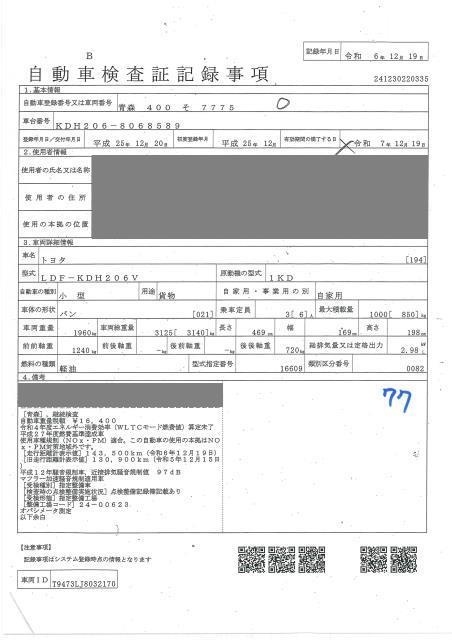 記録年月日 令和 6年12月19日
B
自動車検査証記録事項
241230220335
1.基本情報
自動車登録番号又は車両番号 青森 400 そ 7775
車台番号 KDH206-8068589
登録年月日/交付年月日 平成 25年12月20日 初度登録年月 平成 25年12月 有効期間の満了する日 令和 7年12月19日
2.使用者情報
使用者の氏名又は名称
使用者の住所
使用の本拠の位置
3.車両詳細情報
車名 トヨタ [194]
型式 LDF-KDH206V 原動機の型式 1KD
自動車の種別 小型 用途 貨物 自家用・事業用の別 自家用
車体の形状 バン [021] 乗車定員 3[ 6]人 最大積載量 1000[ 850]kg
車両重量 1960kg 車両総重量 3125[ 3140]kg 長さ 469cm 幅 169cm 高さ 198cm
前前軸重 1240kg 前後軸重 -kg 後前軸重 -kg 後後軸重 720kg 総排気量又は定格出力 2.98L
燃料の種類 軽油 型式指定番号 16609 類別区分番号 0082
4.備考
77
[青森],継続検査
自動車重量税額 ¥16,400
令和4年度エネルギー消費効率(WLTCモード燃費値)算定未了
平成27年度燃費基準達成車
使用車種規制(NOx・PM)適合,この自動車の使用の本拠はNO
x・PM対策地域外です。
[走行距離計表示値]143,500km(令和6年12月19日)
[旧走行距離計表示値]130,900km(令和5年12月15日
)
平成12年騒音規制車,近接排気騒音規制値 97dB
マフラー加速騒音規制適用車
[受検種別]指定整備車
[検査時の点検整備実施状況]点検整備記録簿記載あり
[受検形態]指定整備工場
[整備工場コード]24-00623
オパシメータ測定
以下余白
【注意事項】
記録事項はシステム登録時点の情報となります
車両ID T9473LJ8032170